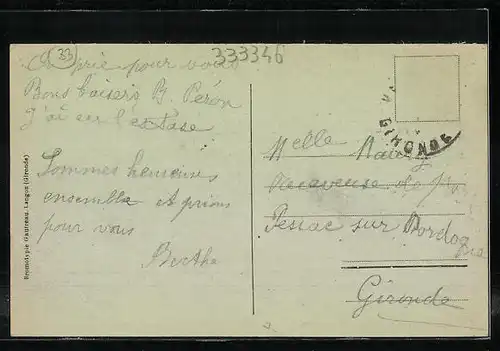 33
333346
On prie pour vous
Bons baisers B. Péron
J'ai eu l'extase
Sommes heureux
ensemble et prions
pour vous
Berthe
Bromotypie Gautreau, Langon (Gironde)
GIRONDE
Melle
Receveuse de
Pessac sur Dordogne
Gironde